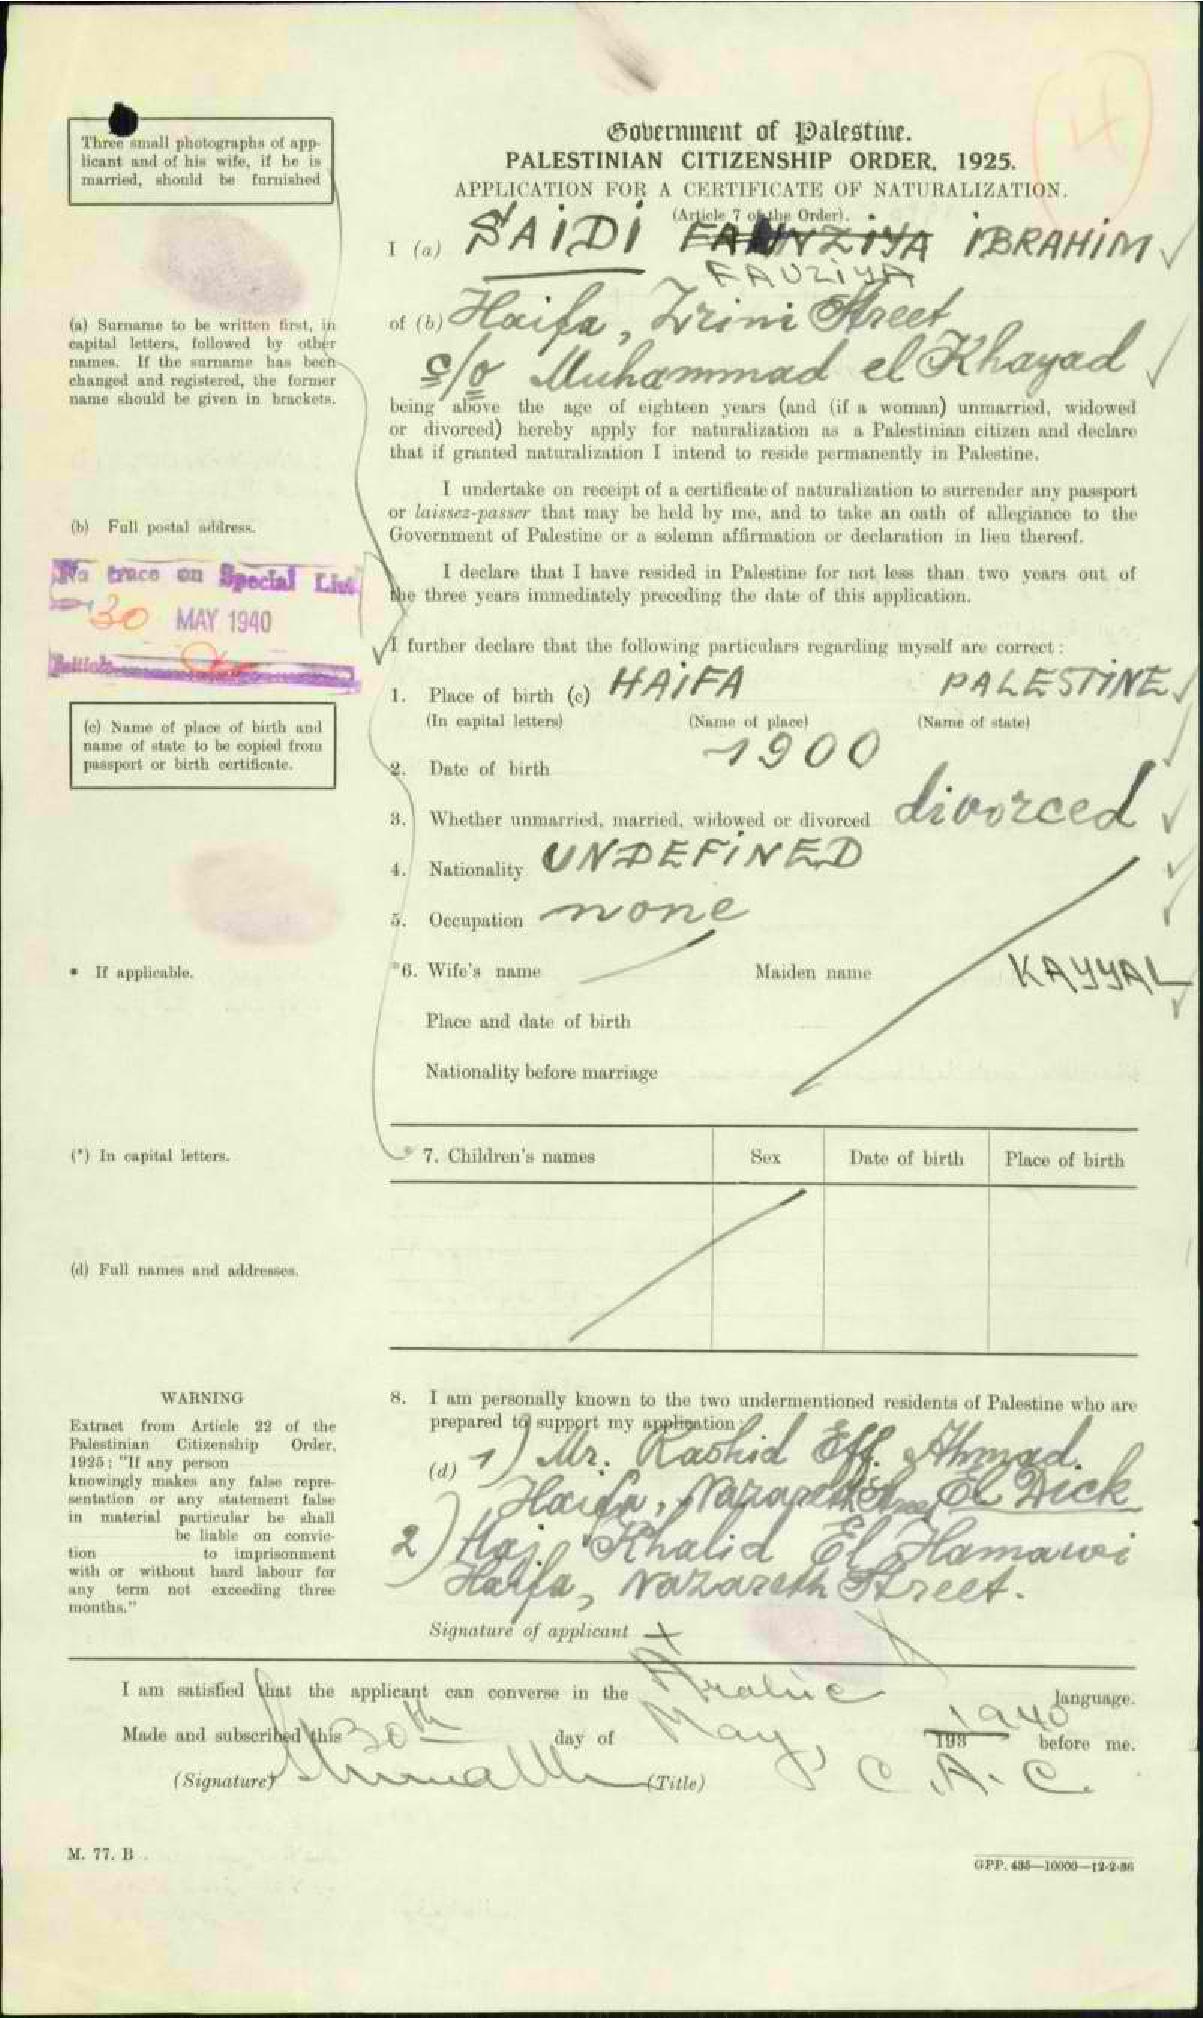 Three small photographs of app-
licant and of his wife, if he is
married, should be furnished
Government of Palestine.
PALESTINIAN CITIZENSHIP ORDER, 1925.
APPLICATION FOR A CERTIFICATE OF NATURALIZATION.
(Article 7 of the Order).
I (a) SAIDI FAUNZIYA IBRAHIM
FAUZIYA
(a) Surname to be written first, in
capital letters, followed by other
names. If the surname has been
changed and registered, the former
name should be given in brackets.
of (b) Haifa, Street
c/o Muhammad el Khayad
being above the age of eighteen years (and (if a woman) unmarried, widowed
or divorced) hereby apply for naturalization as a Palestinian citizen and declare
that if granted naturalization I intend to reside permanently in Palestine.
I undertake on receipt of a certificate of naturalization to surrender any passport
or laissez-passer that may be held by me, and to take an oath of allegiance to the
Government of Palestine or a solemn affirmation or declaration in lieu thereof.
(b) Full postal address.
No trace on Special List
30 MAY 1940
I declare that I have resided in Palestine for not less than two years out of
the three years immediately preceding the date of this application.
I further declare that the following particulars regarding myself are correct :
1. Place of birth (c) HAIFA PALESTINE
(In capital letters) (Name of place) (Name of state)
(c) Name of place of birth and
name of state to be copied from
passport or birth certificate.
2. Date of birth 1900
3. Whether unmarried, married, widowed or divorced divorced
4. Nationality UNDEFINED
5. Occupation none
* If applicable.
*6. Wife's name Maiden name KAYYAL
Place and date of birth
Nationality before marriage
(*) In capital letters.
* 7. Children's names Sex Date of birth Place of birth
(d) Full names and addresses.
WARNING
Extract from Article 22 of the
Palestinian Citizenship Order,
1925 : "If any person
knowingly makes any false repre-
sentation or any statement false
in material particular he shall
be liable on convic-
tion to imprisonment
with or without hard labour for
any term not exceeding three
months."
8. I am personally known to the two undermentioned residents of Palestine who are
prepared to support my application :
(d) 1) Mr. Rashid Eff. Ahmad
Haifa, Nazareth El Dick
2) Haj Khalid El Hamawi
Haifa, Nazareth Street.
Signature of applicant X
I am satisfied that the applicant can converse in the Arabic language.
Made and subscribed this 30th day of May, 193 1940 before me.
(Signature) (Title) C. A. C.
M. 77. B
GPP. 435—10000—12-2-36